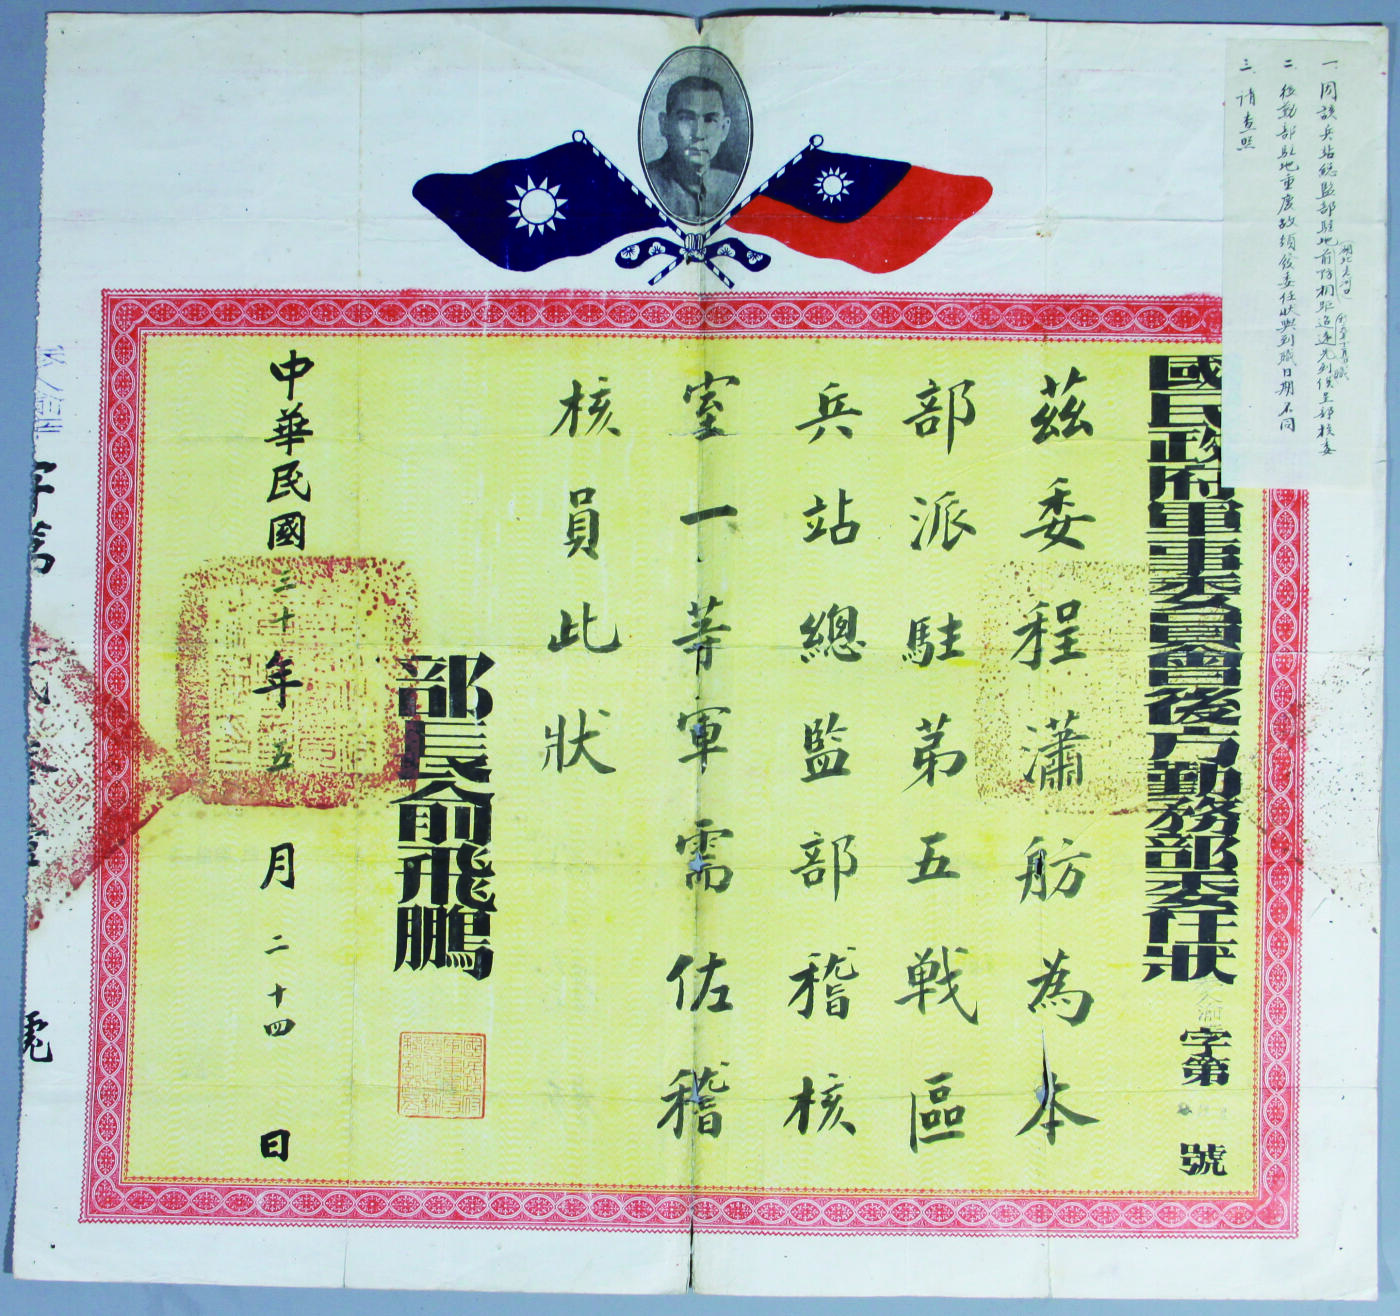 一 因該兵站總監部駐地前防相距迢遠先到候呈部核委
湖北老河口
二 後勤部駐地重慶故頒發委任狀與到職日期不同
三 請查照
國民政府軍事委員會後方勤務部委任狀
字第 號
茲委程瀟舫為本
部派駐第五戰區
兵站總監部稽核
室一等軍需佐稽
核員此狀
部長俞飛鵬
中華民國三十年五月二十四日
字第
號